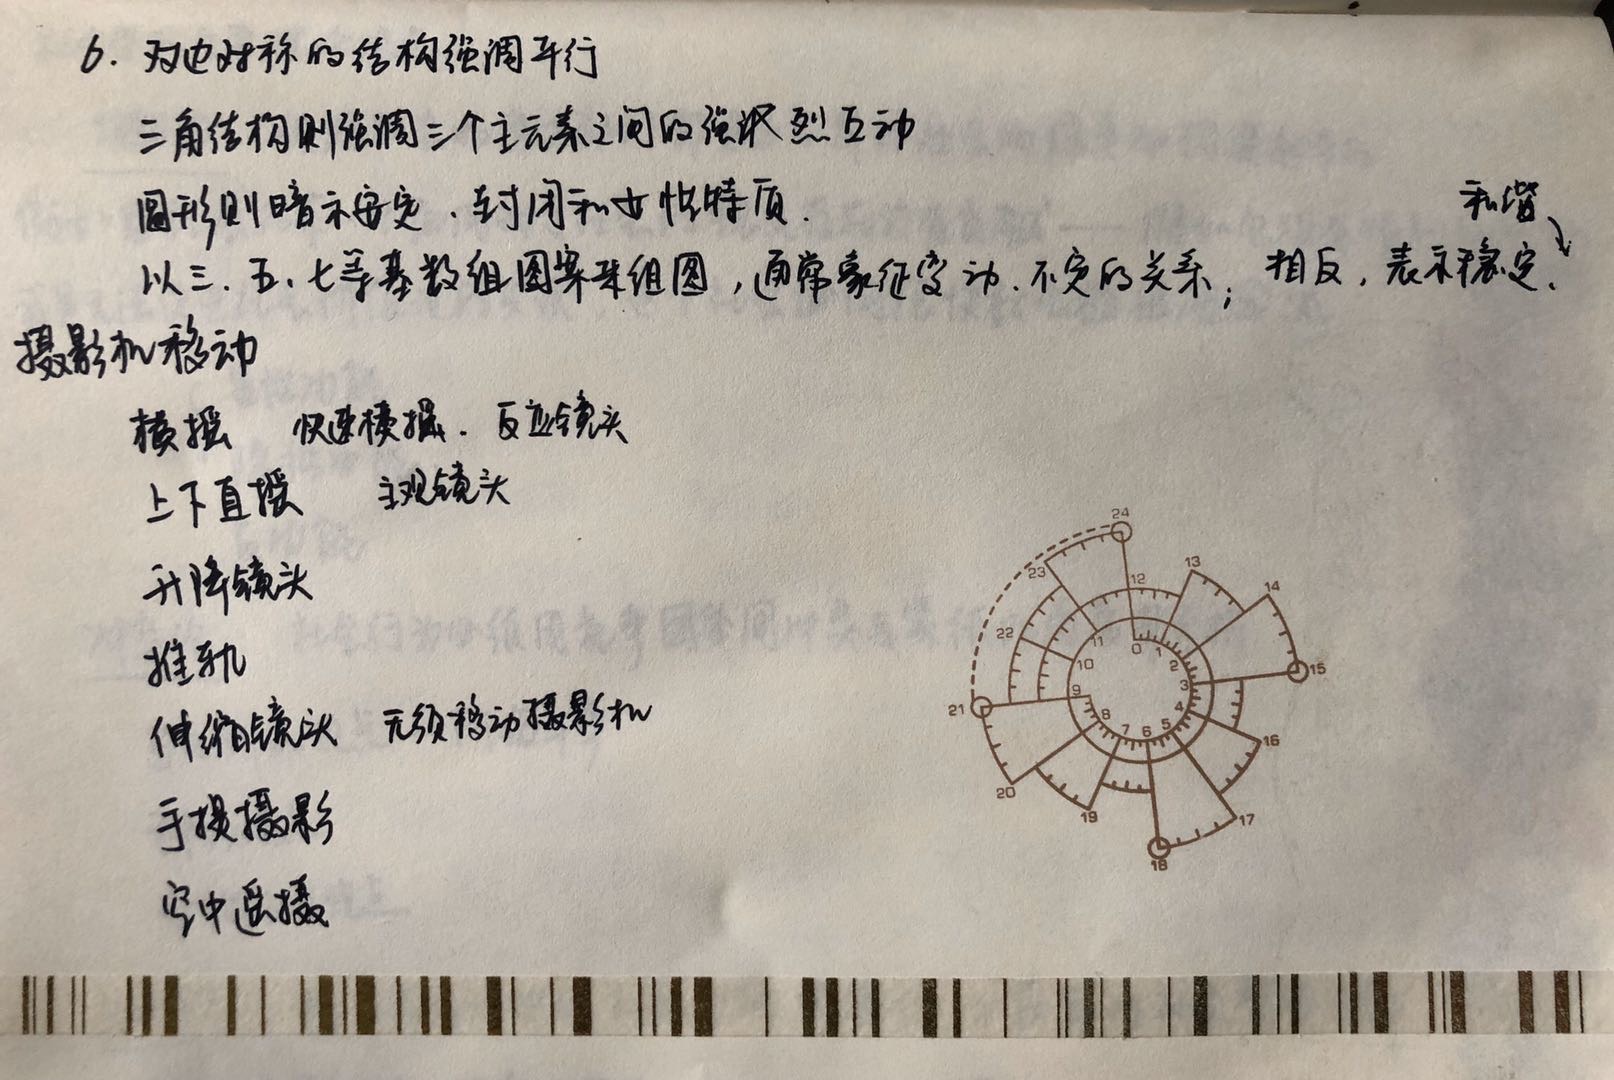 6. 对边对称的结构强调平行
三角结构则强调三个主元素之间的强烈互动
圆形则暗示安定、封闭和女性特质.
和谐
以三、五、七等基数组图案来组图,通常象征变动、不定的关系; 相反,表示稳定、
摄影机移动
横摇 快速横摇. 反应镜头
上下直摇 主观镜头
升降镜头
推轨
伸缩镜头 无须移动摄影机
手提摄影
空中遥摄
24
23
12
13
14
22
11
0
1
2
15
10
3
9
4
21
8
7
6
5
16
20
19
17
18